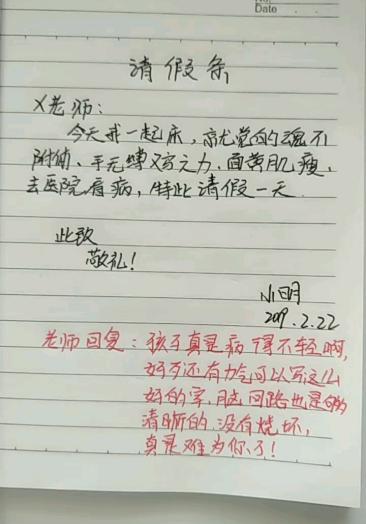 No.
Date
请假条
X老师:
今天我一起床,就觉的魂不
附体、手无缚鸡之力、面黄肌瘦、
去医院看病,特此请假一天.
此致
敬礼!
小明
2019.2.22
老师回复:孩子真是病得不轻啊,
好歹还有力气可以写这么
好的字,脑回路也是够
清晰的,没有烧坏,
真是难为你了!